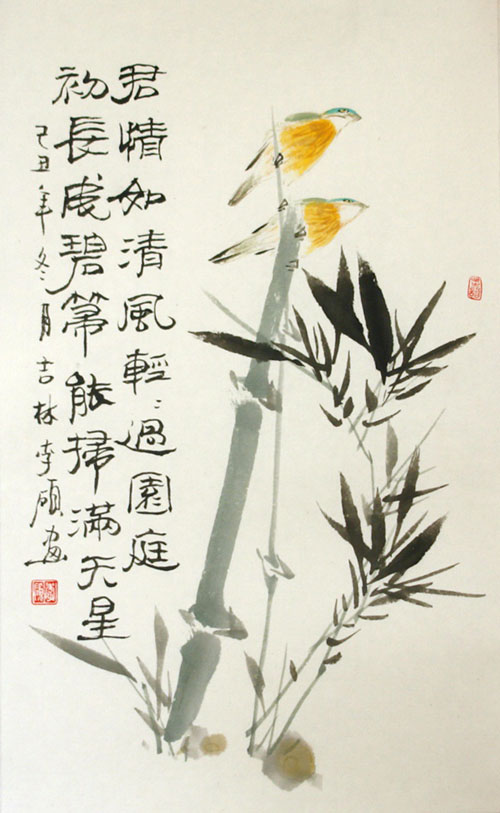 君情如清風輕〻過園庭
初長成碧箒能掃滿天星
己丑年冬月吉林李硕画